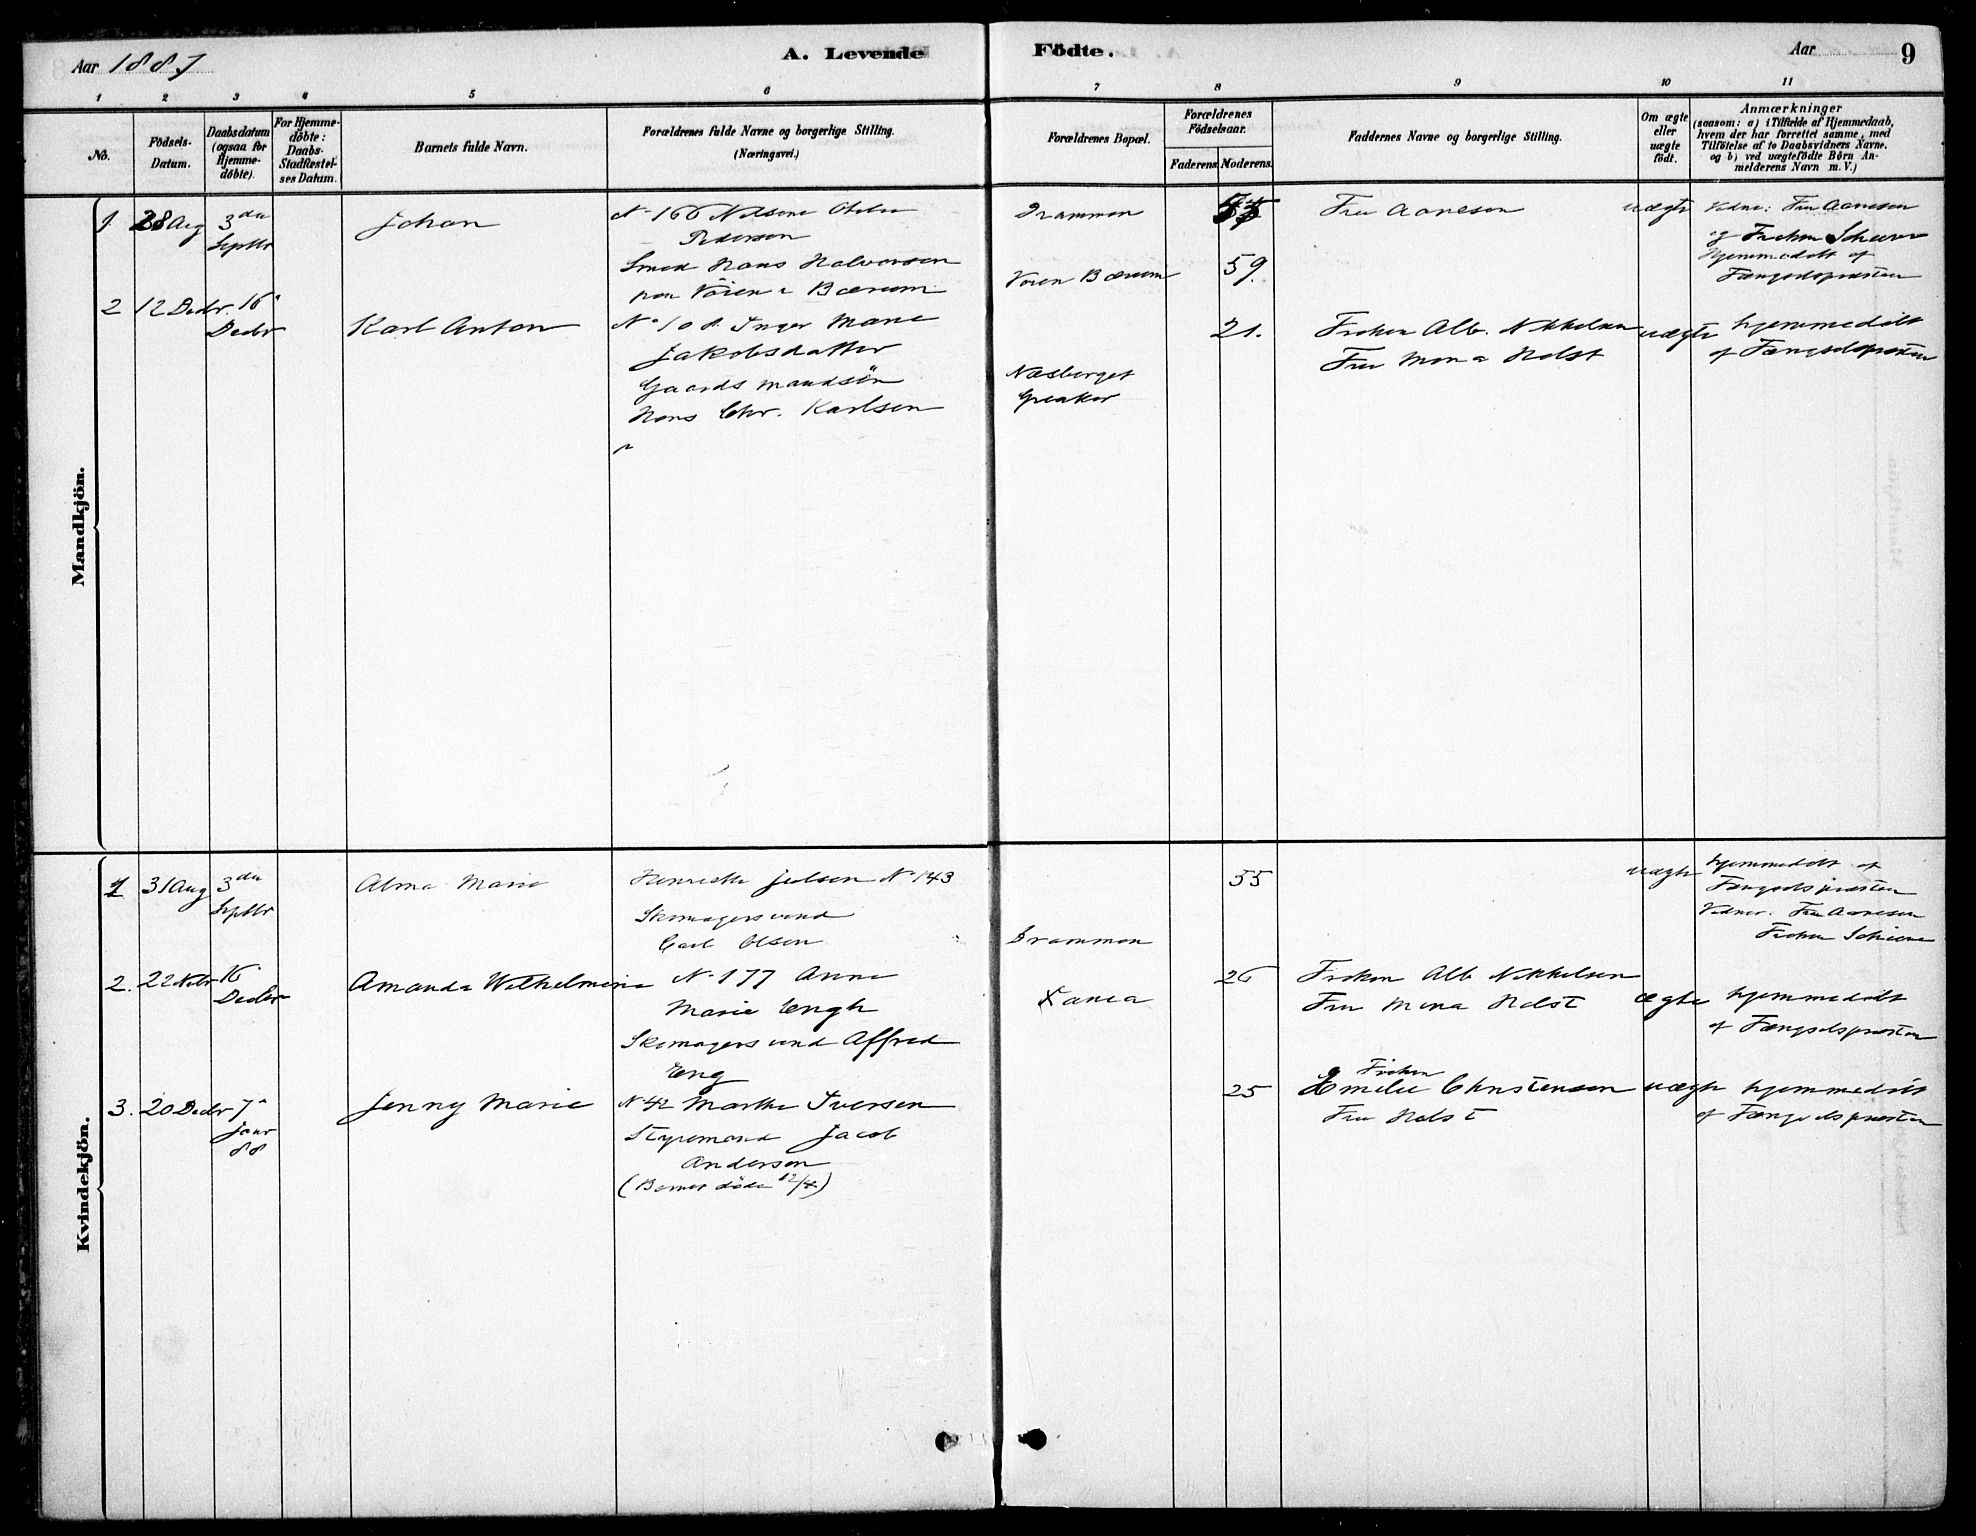 Aar 1887
A. Levende Födte.
Aar
9
1 2 3 4 5 6 7 8 9 10 11
No.
Födsels-Datum.
Daabsdatum (ogsaa for Hjemme-döbte).
For Hjemme-döbte: Daabs-Stadfæstel-ses Datum.
Barnets fulde Navn.
Forældrenes fulde Navne og borgerlige Stilling.
(Næringsvei.)
Forældrenes Bopæl.
Forældrenes Födselsaar.
Faderens. Moderens.
Faddernes Navne og borgerlige Stilling.
Om ægte eller uægte födt.
Anmærkninger
(saasom: a) i Tilfælde af Hjemmedaab,
hvem der har forrettet samme, med
Tilföielse af to Daabsvidners Navne,
og b) ved uægtefödte Börn An-
melderens Navn m. V.)
Mandkjön.
1. 28 Aug 3die Septbr
Johan
N. 166 Nilsine
Pedersen
Smed Hans Halvorsen
Bærum
Drammen
Bærum
59.
Fru Aanesen
uægte
Vidne: Fru Aanesen
og Frøken
Hjemmedøbt af
Fængselspræsten
2 12 Decbr. 16 Decbr
Karl Anton
No 108. Inger Marie
Jakobsdatter
Gaardmandsön
Hans Chr. Karlsen
Næsberget
Greaker
21.
Frøken Alb. Mikkelsen
Fru Mina Holst
uægte
hjemmedøbt
af Fængselspræsten
Kvindekjön.
1 31 Aug 3die Septbr
Alma Marie
Henriette Julsen N 143
Skomagersvend
Carl Olsen
Drammen
55
uægte
hjemmedøbt af
Fængselspræsten
Vidner: Fru Aanesen
Frøken
2. 22 16 Decbr
Amanda Wilhelmine
N. 177 Anne
Marie Engh
Skomagersvend Alfred
Eng
Xania
26
Frøken Alb Mikkelsen
Fru Mina Holst
ægte
hjemmedøbt
af Fængselspræsten
3. 20 Decbr 7 Janr 88
Jenny Marie
N 42 Marthe Iversen
Styrmand Jacob
Andersen
(Barnet døde 12/4)
25
Frøken
Emilie Christensen
Fru Holst
uægte
hjemmedøbt
af Fængselspræsten